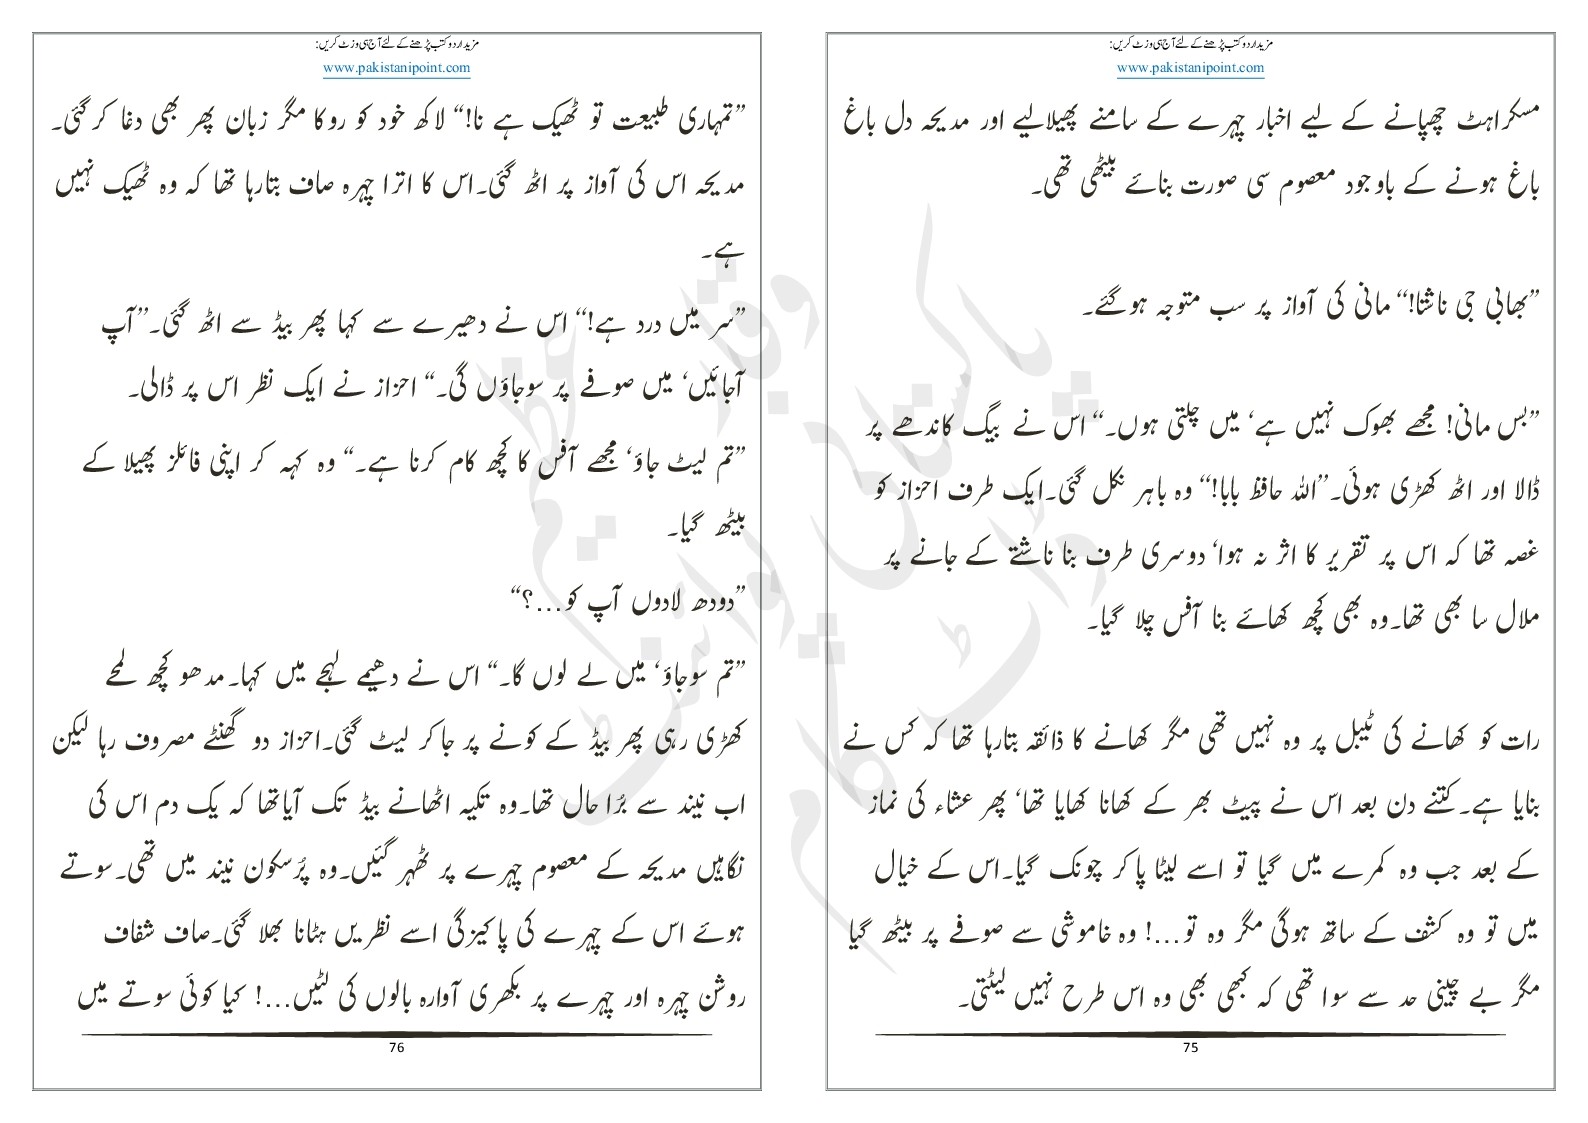 مزید اردو کتب پڑھنے کے لئے آج ہی وزٹ کریں:
www.pakistanipoint.com
مسکراہٹ چھپانے کے لیے اخبار چہرے کے سامنے پھیلالیے اور مدیحہ دل باغ
باغ ہونے کے باوجود معصوم سی صورت بنائے بیٹھی تھی۔
”بھابی جی ناشتا!“ مانی کی آواز پر سب متوجہ ہوگئے۔
”بس مانی! مجھے بھوک نہیں ہے‘ میں چلتی ہوں۔“ اس نے بیگ کاندھے پر
ڈالا اور اٹھ کھڑی ہوئی۔”اللہ حافظ بابا!“ وہ باہر نکل گئی۔ایک طرف احزاز کو
غصہ تھا کہ اس پر تقریر کا اثر نہ ہوا‘ دوسری طرف بنا ناشتے کے جانے پر
ملال سا بھی تھا۔وہ بھی کچھ کھائے بنا آفس چلا گیا۔
رات کو کھانے کی ٹیبل پر وہ نہیں تھی مگر کھانے کا ذائقہ بتارہا تھا کہ کس نے
بنایا ہے۔کتنے دن بعد اس نے پیٹ بھر کے کھانا کھایا تھا‘ پھر عشاء کی نماز
کے بعد جب وہ کمرے میں گیا تو اسے لیٹا پاکر چونک گیا۔اس کے خیال
میں تو وہ کشف کے ساتھ ہوگی مگر وہ تو...! وہ خاموشی سے صوفے پر بیٹھ گیا
مگر بے چینی حد سے سوا تھی کہ کبھی بھی وہ اس طرح نہیں لیٹتی۔
75
مزید اردو کتب پڑھنے کے لئے آج ہی وزٹ کریں:
www.pakistanipoint.com
”تمہاری طبیعت تو ٹھیک ہے نا!“ لاکھ خود کو روکا مگر زبان پھر بھی دغا کرگئی۔
مدیحہ اس کی آواز پر اٹھ گئی۔اس کا اترا چہرہ صاف بتارہا تھا کہ وہ ٹھیک نہیں
ہے۔
”سر میں درد ہے!“ اس نے دھیرے سے کہا پھر بیڈ سے اٹھ گئی۔”آپ
آجائیں‘ میں صوفے پر سوجاؤں گی۔“ احزاز نے ایک نظر اس پر ڈالی۔
”تم لیٹ جاؤ‘ مجھے آفس کا کچھ کام کرنا ہے۔“ وہ کہہ کر اپنی فائلز پھیلا کے
بیٹھ گیا۔
”دودھ لادوں آپ کو...؟“
”تم سوجاؤ‘ میں لے لوں گا۔“ اس نے دھیمے لہجے میں کہا۔مدھو کچھ لمحے
کھڑی رہی پھر بیڈ کے کونے پر جاکر لیٹ گئی۔احزاز دو گھنٹے مصروف رہا لیکن
اب نیند سے بُرا حال تھا۔وہ تکیہ اٹھانے بیڈ تک آیاتھا کہ یک دم اس کی
نگاہیں مدیحہ کے معصوم چہرے پر ٹھہر گئیں۔وہ پُرسکون نیند میں تھی۔سوتے
ہوئے اس کے چہرے کی پاکیزگی اسے نظریں ہٹانا بھلا گئی۔صاف شفاف
روشن چہرہ اور چہرے پر بکھری آوارہ بالوں کی لٹیں...! کیا کوئی سوتے میں
76
پاکستانی پوائنٹ ڈاٹ کام